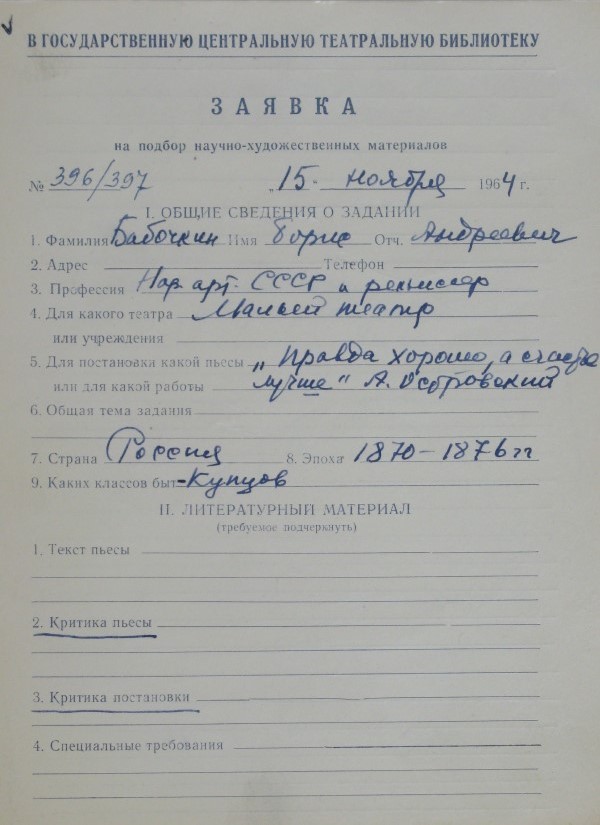 В ГОСУДАРСТВЕННУЮ ЦЕНТРАЛЬНУЮ ТЕАТРАЛЬНУЮ БИБЛИОТЕКУ
ЗАЯВКА
на подбор научно-художественных материалов
№ 396/397 „15. ноября 1964 г.
I. ОБЩИЕ СВЕДЕНИЯ О ЗАДАНИИ
1. Фамилия Бабочкин Имя Борис Отч. Андреевич
2. Адрес Телефон
3. Профессия Нар. арт. СССР и режиссер
4. Для какого театра Малый театр
или учреждения
5. Для постановки какой пьесы „Правда хорошо, а счастье
или для какой работы лучше" А. Островский
6. Общая тема задания
7. Страна Россия 8. Эпоха 1870-1876 гг
9. Каких классов быт - Купцов
II. ЛИТЕРАТУРНЫЙ МАТЕРИАЛ
(требуемое подчеркнуть)
1. Текст пьесы
2. Критика пьесы
3. Критика постановки
4. Специальные требования